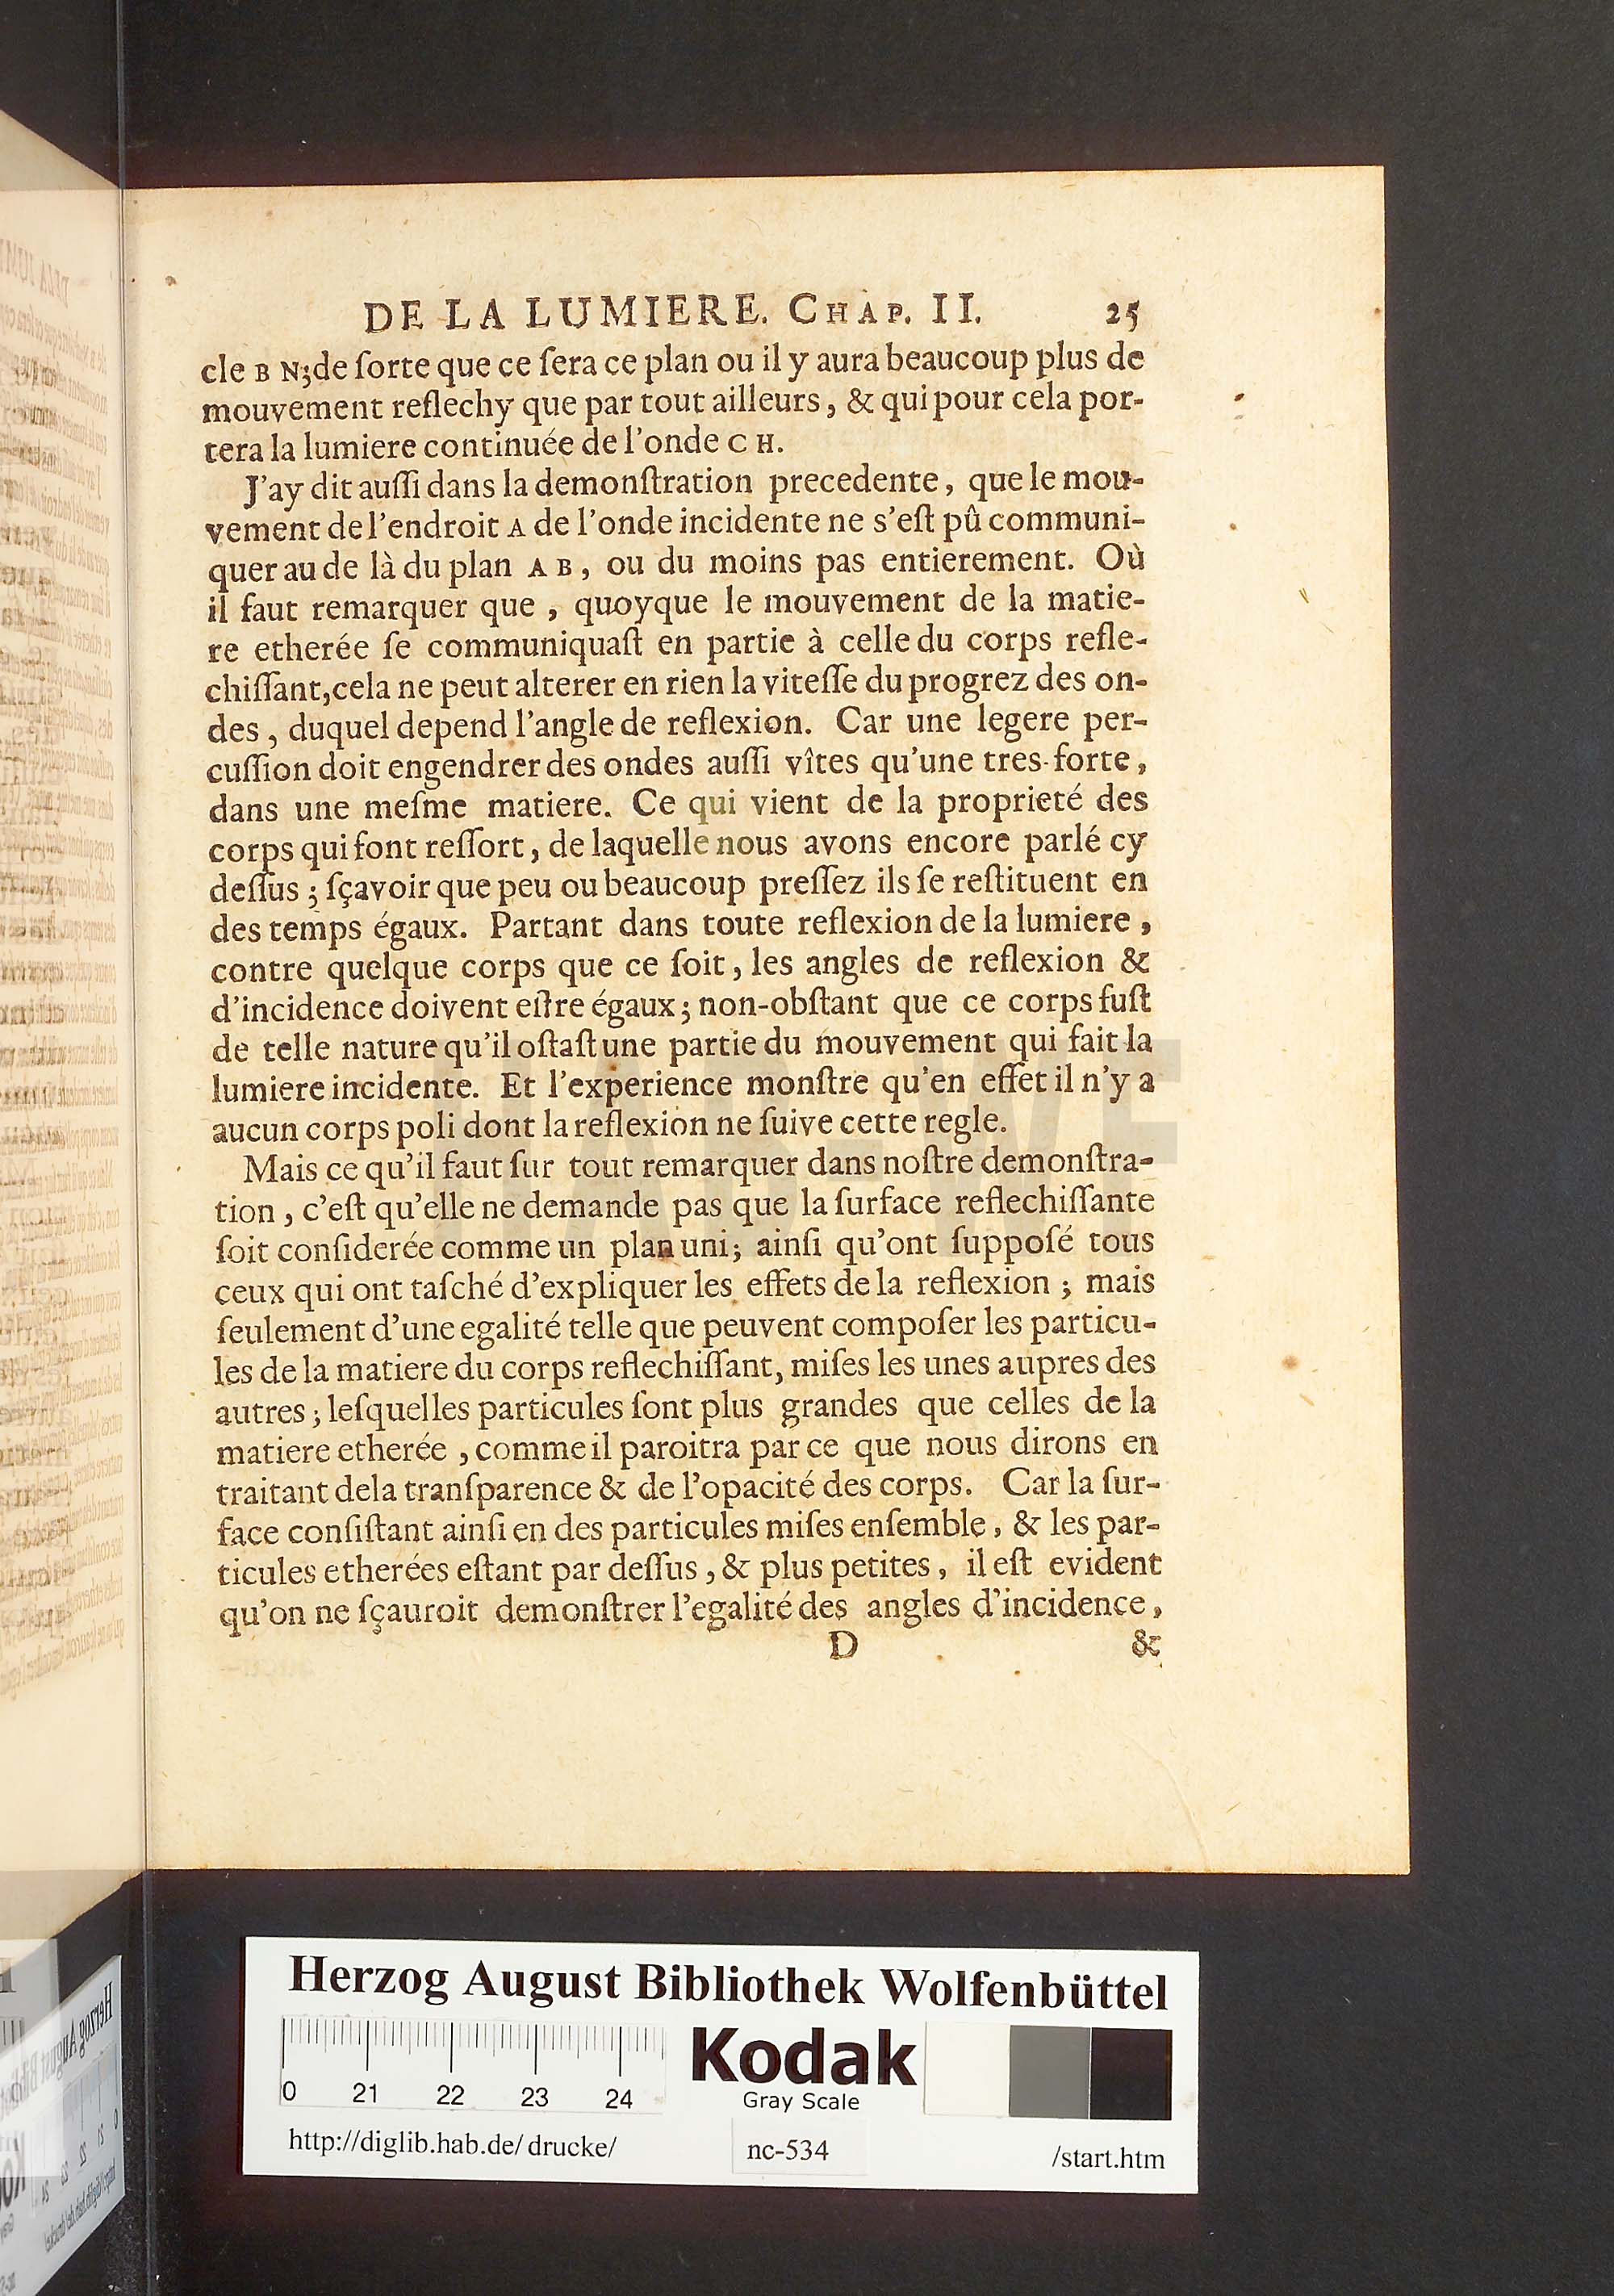 DE LA LUMIERE. CHAP. II. 25
cle B N; de ſorte que ce ſera ce plan ou il y aura beaucoup plus de
mouvement reflechy que par tout ailleurs, & qui pour cela por-
tera la lumiere continuée de l'onde C H.
J'ay dit auſſi dans la demonſtration precedente, que le mou-
vement de l'endroit A de l'onde incidente ne s'eſt pû communi-
quer au de là du plan A B, ou du moins pas entierement. Où
il faut remarquer que, quoyque le mouvement de la matie-
re etherée ſe communiquaſt en partie à celle du corps refle-
chiſſant, cela ne peut alterer en rien la viteſſe du progrez des on-
des, duquel depend l'angle de reflexion. Car une legere per-
cuſſion doit engendrer des ondes auſſi vîtes qu'une tres-forte,
dans une meſme matiere. Ce qui vient de la proprieté des
corps qui font reſſort, de laquelle nous avons encore parlé cy
deſſus; ſçavoir que peu ou beaucoup preſſez ils ſe reſtituent en
des temps égaux. Partant dans toute reflexion de la lumiere,
contre quelque corps que ce ſoit, les angles de reflexion &
d'incidence doivent eſtre égaux; non-obſtant que ce corps fuſt
de telle nature qu'il oſtaſt une partie du mouvement qui fait la
lumiere incidente. Et l'experience monſtre qu'en effet il n'y a
aucun corps poli dont la reflexion ne ſuive cette regle.
Mais ce qu'il faut ſur tout remarquer dans noſtre demonſtra-
tion, c'eſt qu'elle ne demande pas que la ſurface reflechiſſante
ſoit conſiderée comme un plan uni; ainſi qu'ont ſuppoſé tous
ceux qui ont taſché d'expliquer les effets de la reflexion; mais
ſeulement d'une egalité telle que peuvent compoſer les particu-
les de la matiere du corps reflechiſſant, miſes les unes aupres des
autres; leſquelles particules ſont plus grandes que celles de la
matiere etherée, comme il paroitra par ce que nous dirons en
traitant de la tranſparence & de l'opacité des corps. Car la ſur-
face conſiſtant ainſi en des particules miſes enſemble, & les par-
ticules etherées eſtant par deſſus, & plus petites, il eſt evident
qu'on ne ſçauroit demonſtrer l'egalité des angles d'incidence,
D &
Herzog August Bibliothek Wolfenbüttel
0 21 22 23 24
Kodak
Gray Scale
http://diglib.hab.de/drucke/ nc-534 /start.htm